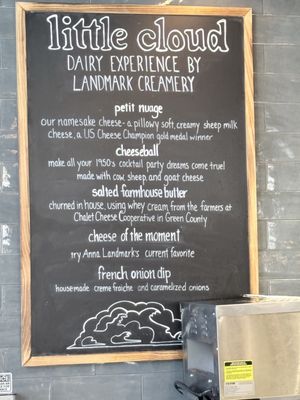 little cloud
DAIRY EXPERIENCE BY
LANDMARK CREAMERY
petit nuage
our namesake cheese - a pillowy soft, creamy sheep milk
cheese, a US Cheese Champion gold medal winner
cheeseball
make all your 1950's cocktail party dreams come true!
made with cow, sheep, and goat cheese
salted farmhouse butter
churned in house, using whey cream from the farmers at
Chalet Cheese Cooperative in Green County
cheese of the moment
try Anna Landmark's current favorite
french onion dip
housemade creme fraiche and caramelized onions